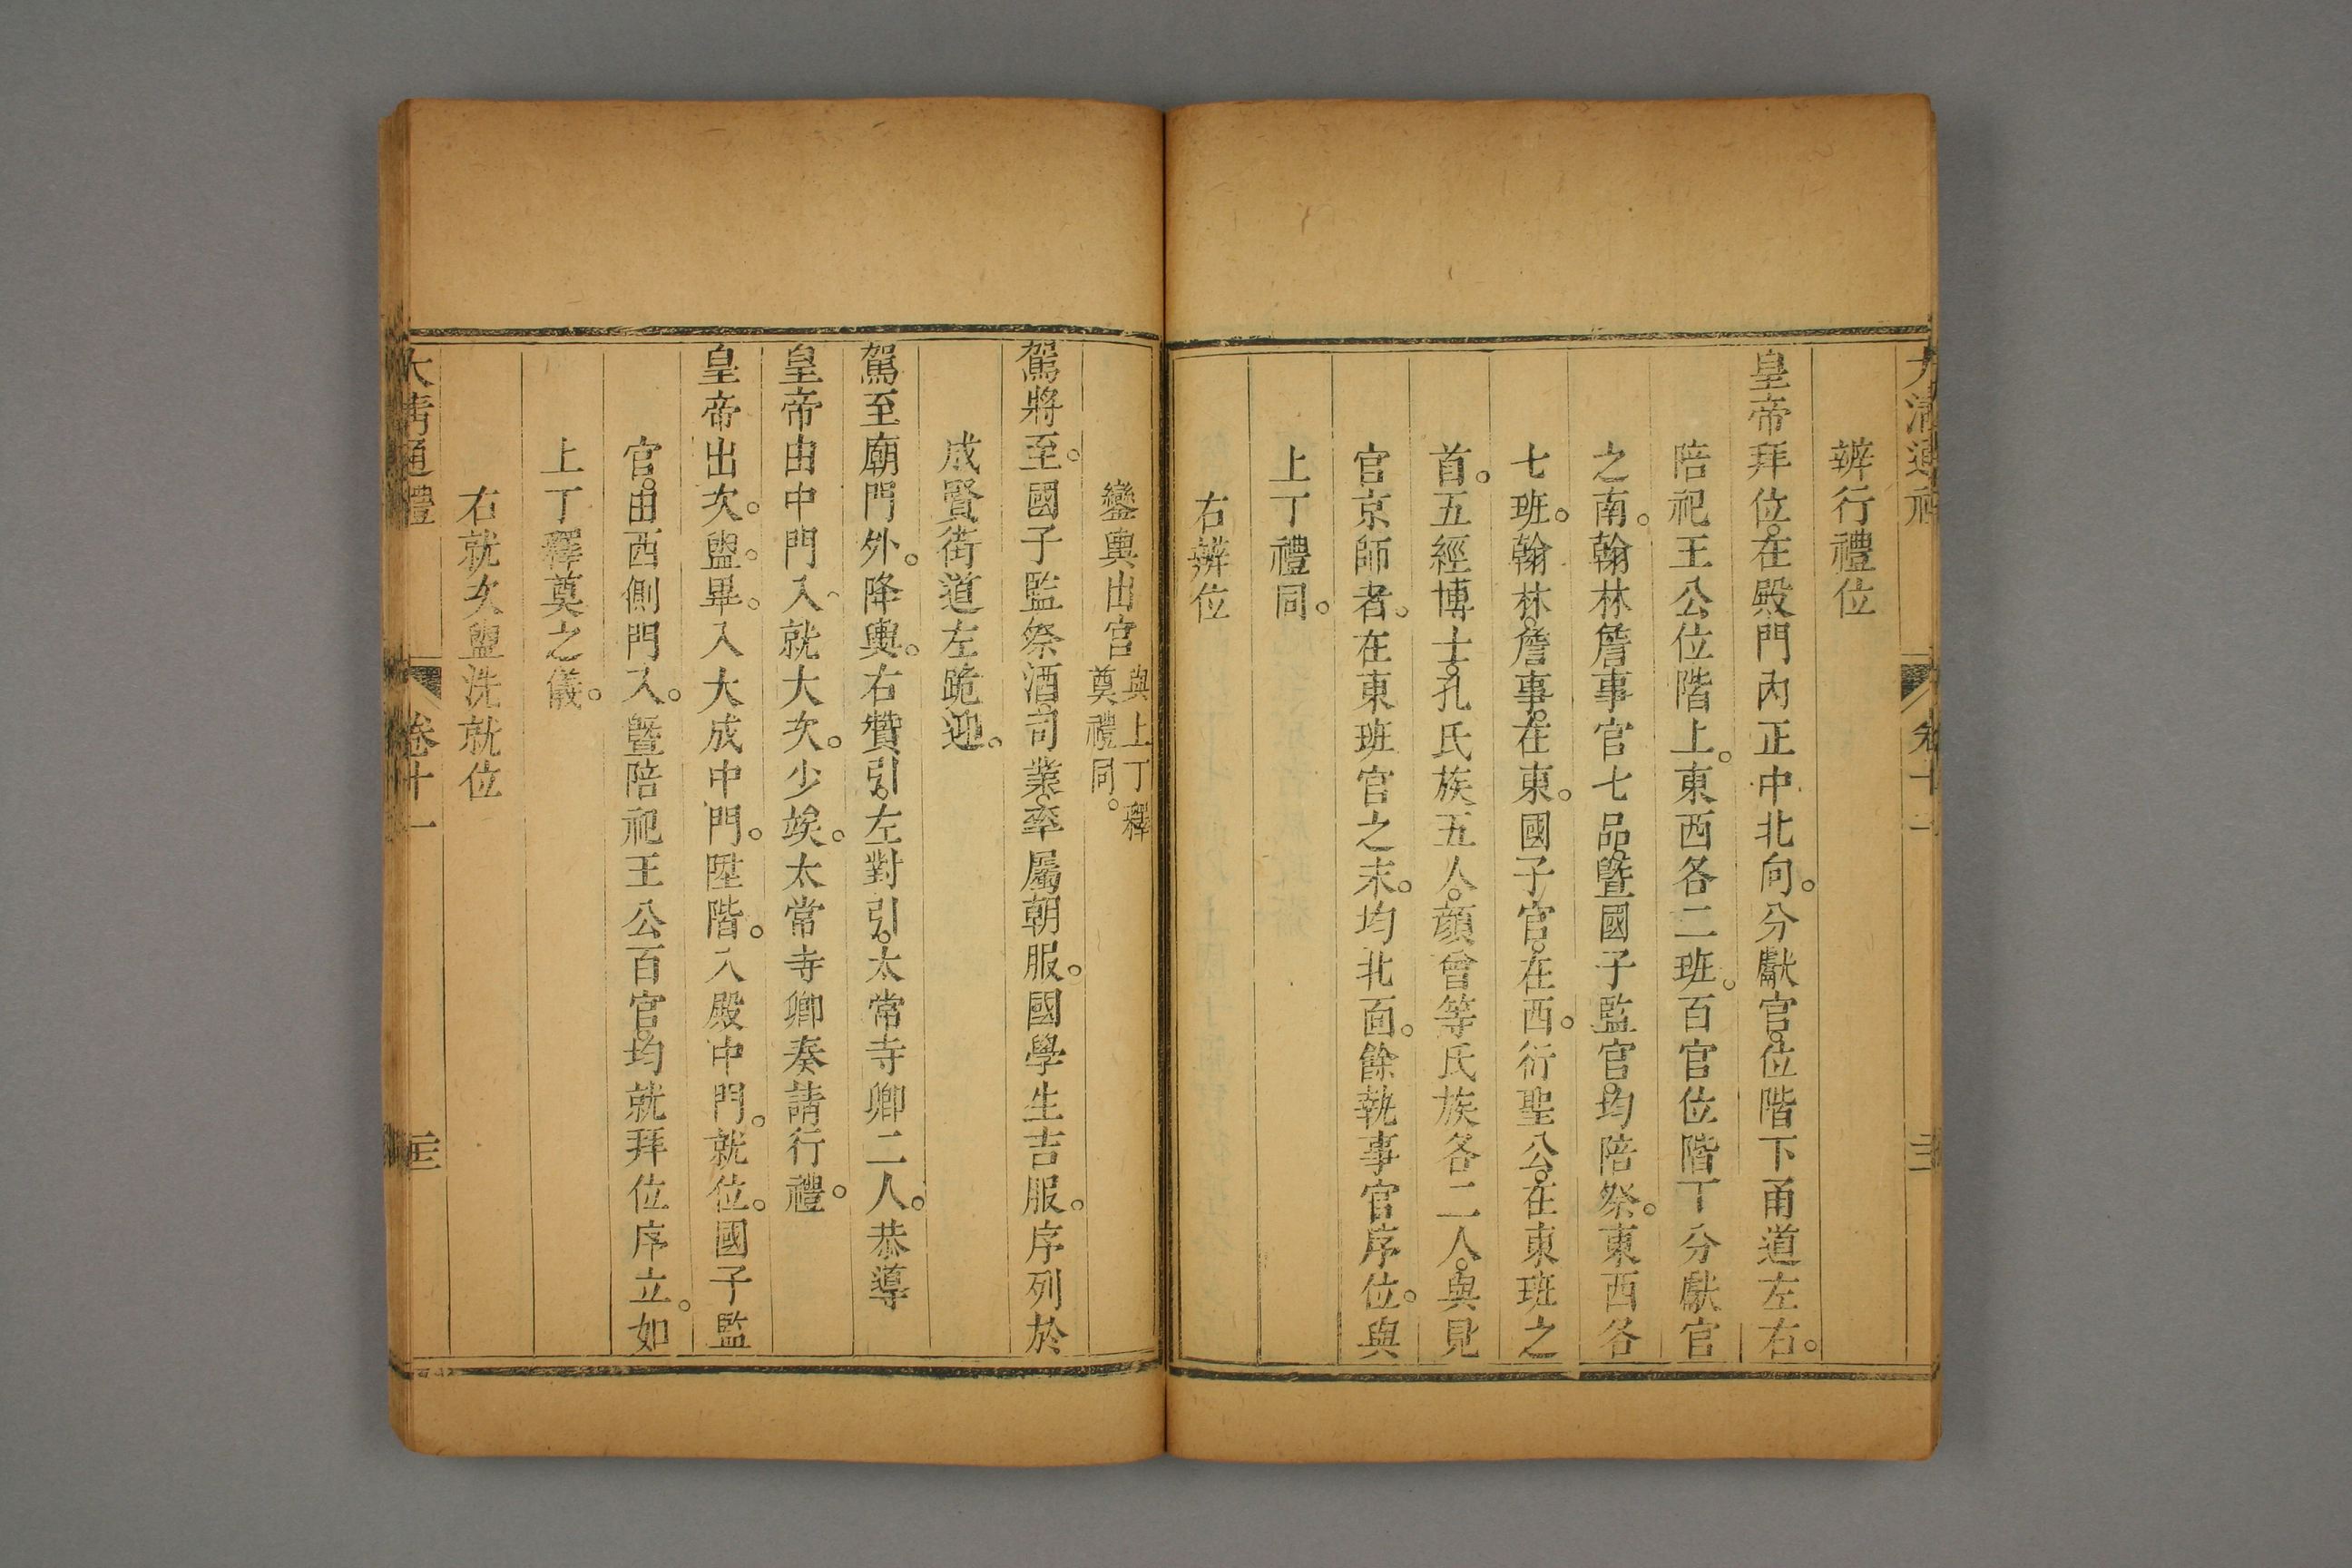 大清通禮 卷十一
辨行禮位
皇帝拜位。在殿門內正中北向。分獻官。位階下甬道左右。
陪祀王公位階上。東西各二班。百官位階下分獻官
之南。翰林詹事官七品。暨國子監官。均陪祭。東西各
七班。翰林。詹事。在東。國子官。在西。衍聖公。在東班之
首。五經博士。孔氏族五人。顔曾等氏族各二人。與見
官京師者。在東班官之末。均北面。餘執事官序位。與
上丁禮同。
右辨位
鑾輿出宮與上丁釋
奠禮同。
駕將至。國子監祭酒。司業。率屬朝服。國學生吉服。序列於
成賢街道左跪迎。
駕至廟門外。降輿。右贊引。左對引。太常寺卿二人。恭導
皇帝由中門入。就大次。少竢。太常寺卿奏請行禮。
皇帝出次。盥。畢。入大成中門。陞階。入殿中門。就位。國子監
官。由西側門入。暨陪祀王公百官。均就拜位序立。如
上丁釋奠之儀。
右就次盥洗就位
大清通禮 卷十一